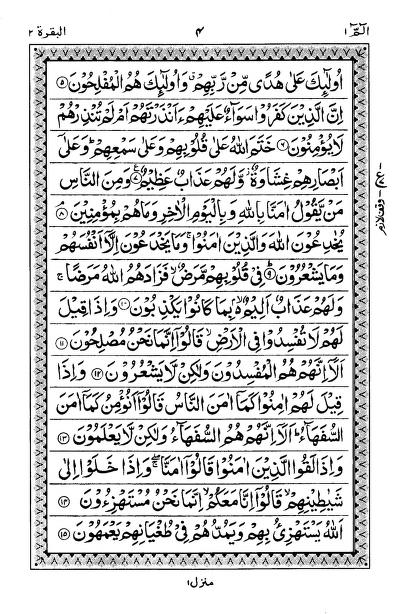 الٓمّٓ ١
٤
البقرة ٢
اُولٰٓئِكَ عَلٰى هُدًى مِّنْ رَّبِّهِمْ ۙ وَاُولٰٓئِكَ هُمُ الْمُفْلِحُوْنَ ۝٥
اِنَّ الَّذِيْنَ كَفَرُوْا سَوَآءٌ عَلَيْهِمْ ءَاَنْذَرْتَهُمْ اَمْ لَمْ تُنْذِرْهُمْ
لَا يُؤْمِنُوْنَ ۝٦ خَتَمَ اللّٰهُ عَلٰى قُلُوْبِهِمْ وَعَلٰى سَمْعِهِمْ ؕ وَعَلٰٓى
اَبْصَارِهِمْ غِشَاوَةٌ ؗ وَّلَهُمْ عَذَابٌ عَظِيْمٌ ۝٧ وَمِنَ النَّاسِ
مَنْ يَّقُوْلُ اٰمَنَّا بِاللّٰهِ وَبِالْيَوْمِ الْاٰخِرِ وَمَا هُمْ بِمُؤْمِنِيْنَ ۝٨
يُخٰدِعُوْنَ اللّٰهَ وَالَّذِيْنَ اٰمَنُوْا ۚ وَمَا يَخْدَعُوْنَ اِلَّآ اَنْفُسَهُمْ
وَمَا يَشْعُرُوْنَ ۝٩ فِيْ قُلُوْبِهِمْ مَّرَضٌ ۙ فَزَادَهُمُ اللّٰهُ مَرَضًا ۚ
وَلَهُمْ عَذَابٌ اَلِيْمٌۢ ۙ بِمَا كَانُوْا يَكْذِبُوْنَ ۝١٠ وَاِذَا قِيْلَ
لَهُمْ لَا تُفْسِدُوْا فِي الْاَرْضِ ۙ قَالُوْٓا اِنَّمَا نَحْنُ مُصْلِحُوْنَ ۝١١
اَلَآ اِنَّهُمْ هُمُ الْمُفْسِدُوْنَ وَلٰكِنْ لَّا يَشْعُرُوْنَ ۝١٢ وَاِذَا
قِيْلَ لَهُمْ اٰمِنُوْا كَمَآ اٰمَنَ النَّاسُ قَالُوْٓا اَنُؤْمِنُ كَمَآ اٰمَنَ
السُّفَهَآءُ ؕ اَلَآ اِنَّهُمْ هُمُ السُّفَهَآءُ وَلٰكِنْ لَّا يَعْلَمُوْنَ ۝١٣
وَاِذَا لَقُوا الَّذِيْنَ اٰمَنُوْا قَالُوْٓا اٰمَنَّا ۚ وَاِذَا خَلَوْا اِلٰى
شَيٰطِيْنِهِمْ ۙ قَالُوْٓا اِنَّا مَعَكُمْ ۙ اِنَّمَا نَحْنُ مُسْتَهْزِءُوْنَ ۝١٤
اَللّٰهُ يَسْتَهْزِئُ بِهِمْ وَيَمُدُّهُمْ فِيْ طُغْيَانِهِمْ يَعْمَهُوْنَ ۝١٥
وقف لازم
منزل ١